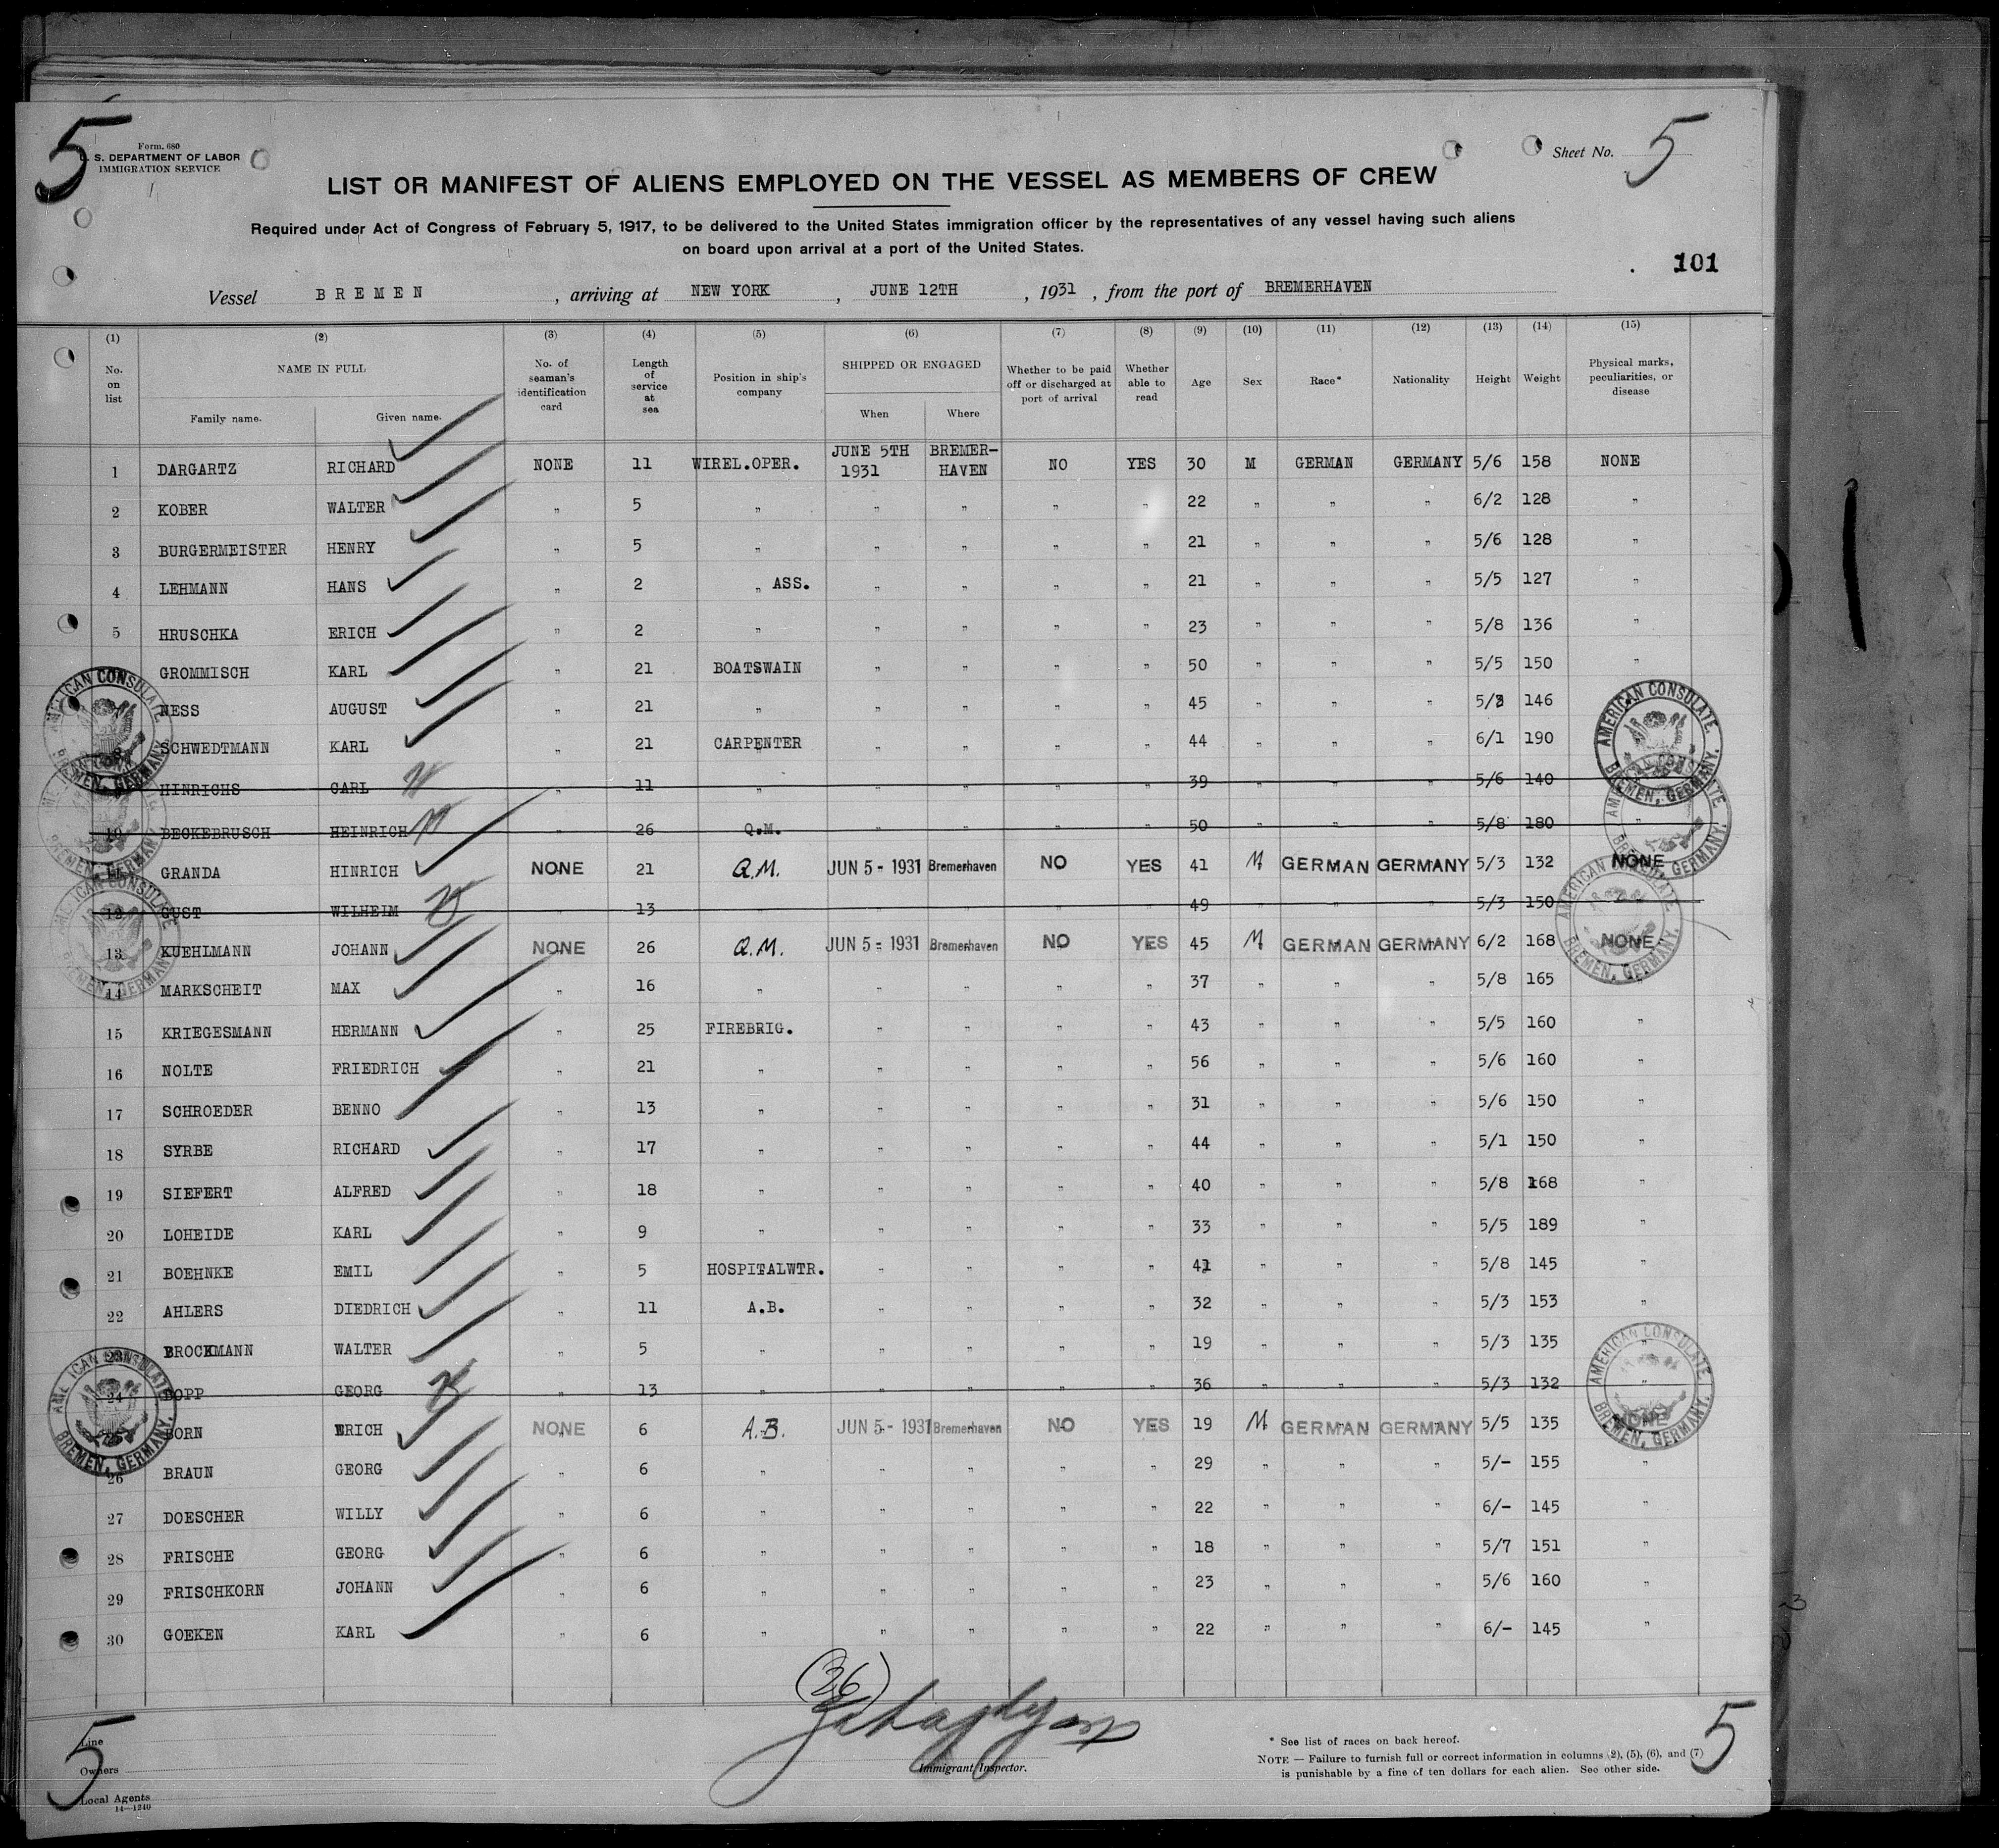 5
Form. 680
U. S. DEPARTMENT OF LABOR
IMMIGRATION SERVICE
Sheet No. 5
LIST OR MANIFEST OF ALIENS EMPLOYED ON THE VESSEL AS MEMBERS OF CREW
Required under Act of Congress of February 5, 1917, to be delivered to the United States immigration officer by the representatives of any vessel having such aliens
on board upon arrival at a port of the United States.
101
Vessel BREMEN, arriving at NEW YORK, JUNE 12TH, 1931, from the port of BREMERHAVEN
(1) (2) (3) (4) (5) (6) (7) (8) (9) (10) (11) (12) (13) (14) (15)
No. on list NAME IN FULL Family name. Given name. No. of seaman's identification card Length of service at sea Position in ship's company SHIPPED OR ENGAGED When Where Whether to be paid off or discharged at port of arrival Whether able to read Age Sex Race* Nationality Height Weight Physical marks, peculiarities, or disease
1 DARGARTZ RICHARD NONE 11 WIREL.OPER. JUNE 5TH 1931 BREMER-HAVEN NO YES 30 M GERMAN GERMANY 5/6 158 NONE
2 KOBER WALTER " 5 " " " " " 22 " " " 6/2 128 "
3 BURGERMEISTER HENRY " 5 " " " " " 21 " " " 5/6 128 "
4 LEHMANN HANS " 2 " ASS. " " " " 21 " " " 5/5 127 "
5 HRUSCHKA ERICH " 2 " " " " " 23 " " " 5/8 136 "
GROMMISCH KARL " 21 BOATSWAIN " " " " 50 " " " 5/5 150 "
7 NESS AUGUST " 21 " " " " " 45 " " " 5/3 146
8 SCHWEDTMANN KARL " 21 CARPENTER " " " " 44 " " " 6/1 190
HINRICHS CARL " 11 " " " " " 39 " " " 5/6 140
10 BECKEBRUSCH HEINRICH " 26 Q.M. " " " " 50 " " " 5/8 180 "
11 GRANDA HINRICH NONE 21 Q.M. JUN 5 - 1931 Bremerhaven NO YES 41 M GERMAN GERMANY 5/3 132 NONE
12 GUST WILHEIM " 13 " " " " " 49 " " " 5/3 150
13 KUEHLMANN JOHANN NONE 26 Q.M. JUN 5 - 1931 Bremerhaven NO YES 45 M GERMAN GERMANY 6/2 168 NONE
14 MARKSCHEIT MAX " 16 " " " " " 37 " " " 5/8 165 "
15 KRIEGESMANN HERMANN " 25 FIREBRIG. " " " " 43 " " " 5/5 160 "
16 NOLTE FRIEDRICH " 21 " " " " " 56 " " " 5/6 160 "
17 SCHROEDER BENNO " 13 " " " " " 31 " " " 5/6 150 "
18 SYRBE RICHARD " 17 " " " " " 44 " " " 5/1 150 "
19 SIEFERT ALFRED " 18 " " " " " 40 " " " 5/8 168 "
20 LOHEIDE KARL " 9 " " " " " 33 " " " 5/5 189 "
21 BOEHNKE EMIL " 5 HOSPITALWTR. " " " " 41 " " " 5/8 145 "
22 AHLERS DIEDRICH " 11 A.B. " " " " 32 " " " 5/3 153 "
23 BROCKMANN WALTER " 5 " " " " " 19 " " " 5/3 135 "
24 BOPP GEORG " 13 " " " " " 36 " " " 5/3 132 "
BORN ERICH NONE 6 A.B. JUN 5 - 1931 Bremerhaven NO YES 19 M GERMAN GERMANY 5/5 135 NONE
26 BRAUN GEORG " 6 " " " " " 29 " " " 5/- 155 "
27 DOESCHER WILLY " 6 " " " " " 22 " " " 6/- 145 "
28 FRISCHE GEORG " 6 " " " " " 18 " " " 5/7 151 "
29 FRISCHKORN JOHANN " 6 " " " " " 23 " " " 5/6 160 "
30 GOEKEN KARL " 6 " " " " " 22 " " " 6/- 145 "
AMERICAN CONSULATE BREMEN, GERMANY.
AMERICAN CONSULATE BREMEN, GERMANY.
AMERICAN CONSULATE BREMEN, GERMANY.
AMERICAN CONSULATE BREMEN, GERMANY.
AMERICAN CONSULATE BREMEN, GERMANY.
AMERICAN CONSULATE BREMEN, GERMANY.
AMERICAN CONSULATE BREMEN, GERMANY.
AMERICAN CONSULATE BREMEN, GERMANY.
(26)
Immigrant Inspector.
5
Line
Owners
Local Agents
14—1240
* See list of races on back hereof.
NOTE — Failure to furnish full or correct information in columns (2), (5), (6), and (7)
is punishable by a fine of ten dollars for each alien. See other side.
5